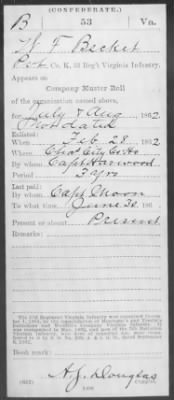 (CONFEDERATE.)
B 53 Va.
W F Becket
Pvt, Co. K, 53 Reg't Virginia Infantry.
Appears on
Company Muster Roll
of the organization named above,
for July & Aug 1862.
Not dated
Enlisted:
When Feb 28, 1862
Where Chas City Co Ho
By whom Capt Harwood
Period 3 yrs
Last paid:
By whom Capt Moon
To what time June 30, 186
Present or absent Present
Remarks:
Book mark:
A. J. Douglas
(642) Copyist.